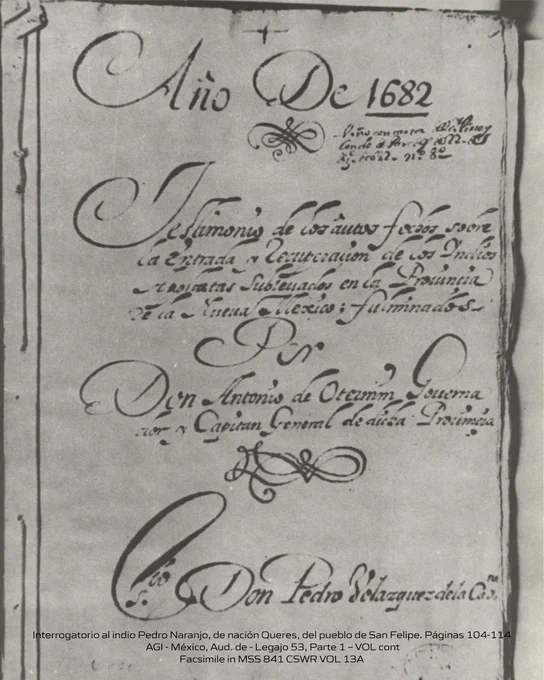 Año De 1682
Vino con carta del Virrey
de 22 de
nº. 8º
Testimonio de los autos fechos sobre
la Entrada y Recuperacion de los Indios
Apostatas Sublevados en la Provincia
de la Nueva Mexico; fulminados
Por
Don Antonio de Otermin Governa
dor y Capitan General de dicha Provincia
sº.
Don Pedro Velazquez de la Cadna
Interrogatorio al indio Pedro Naranjo, de nación Queres, del pueblo de San Felipe. Páginas 104-114
AGI - México, Aud. de - Legajo 53, Parte 1 – VOL cont
Facsimile in MSS 841 CSWR VOL 13A